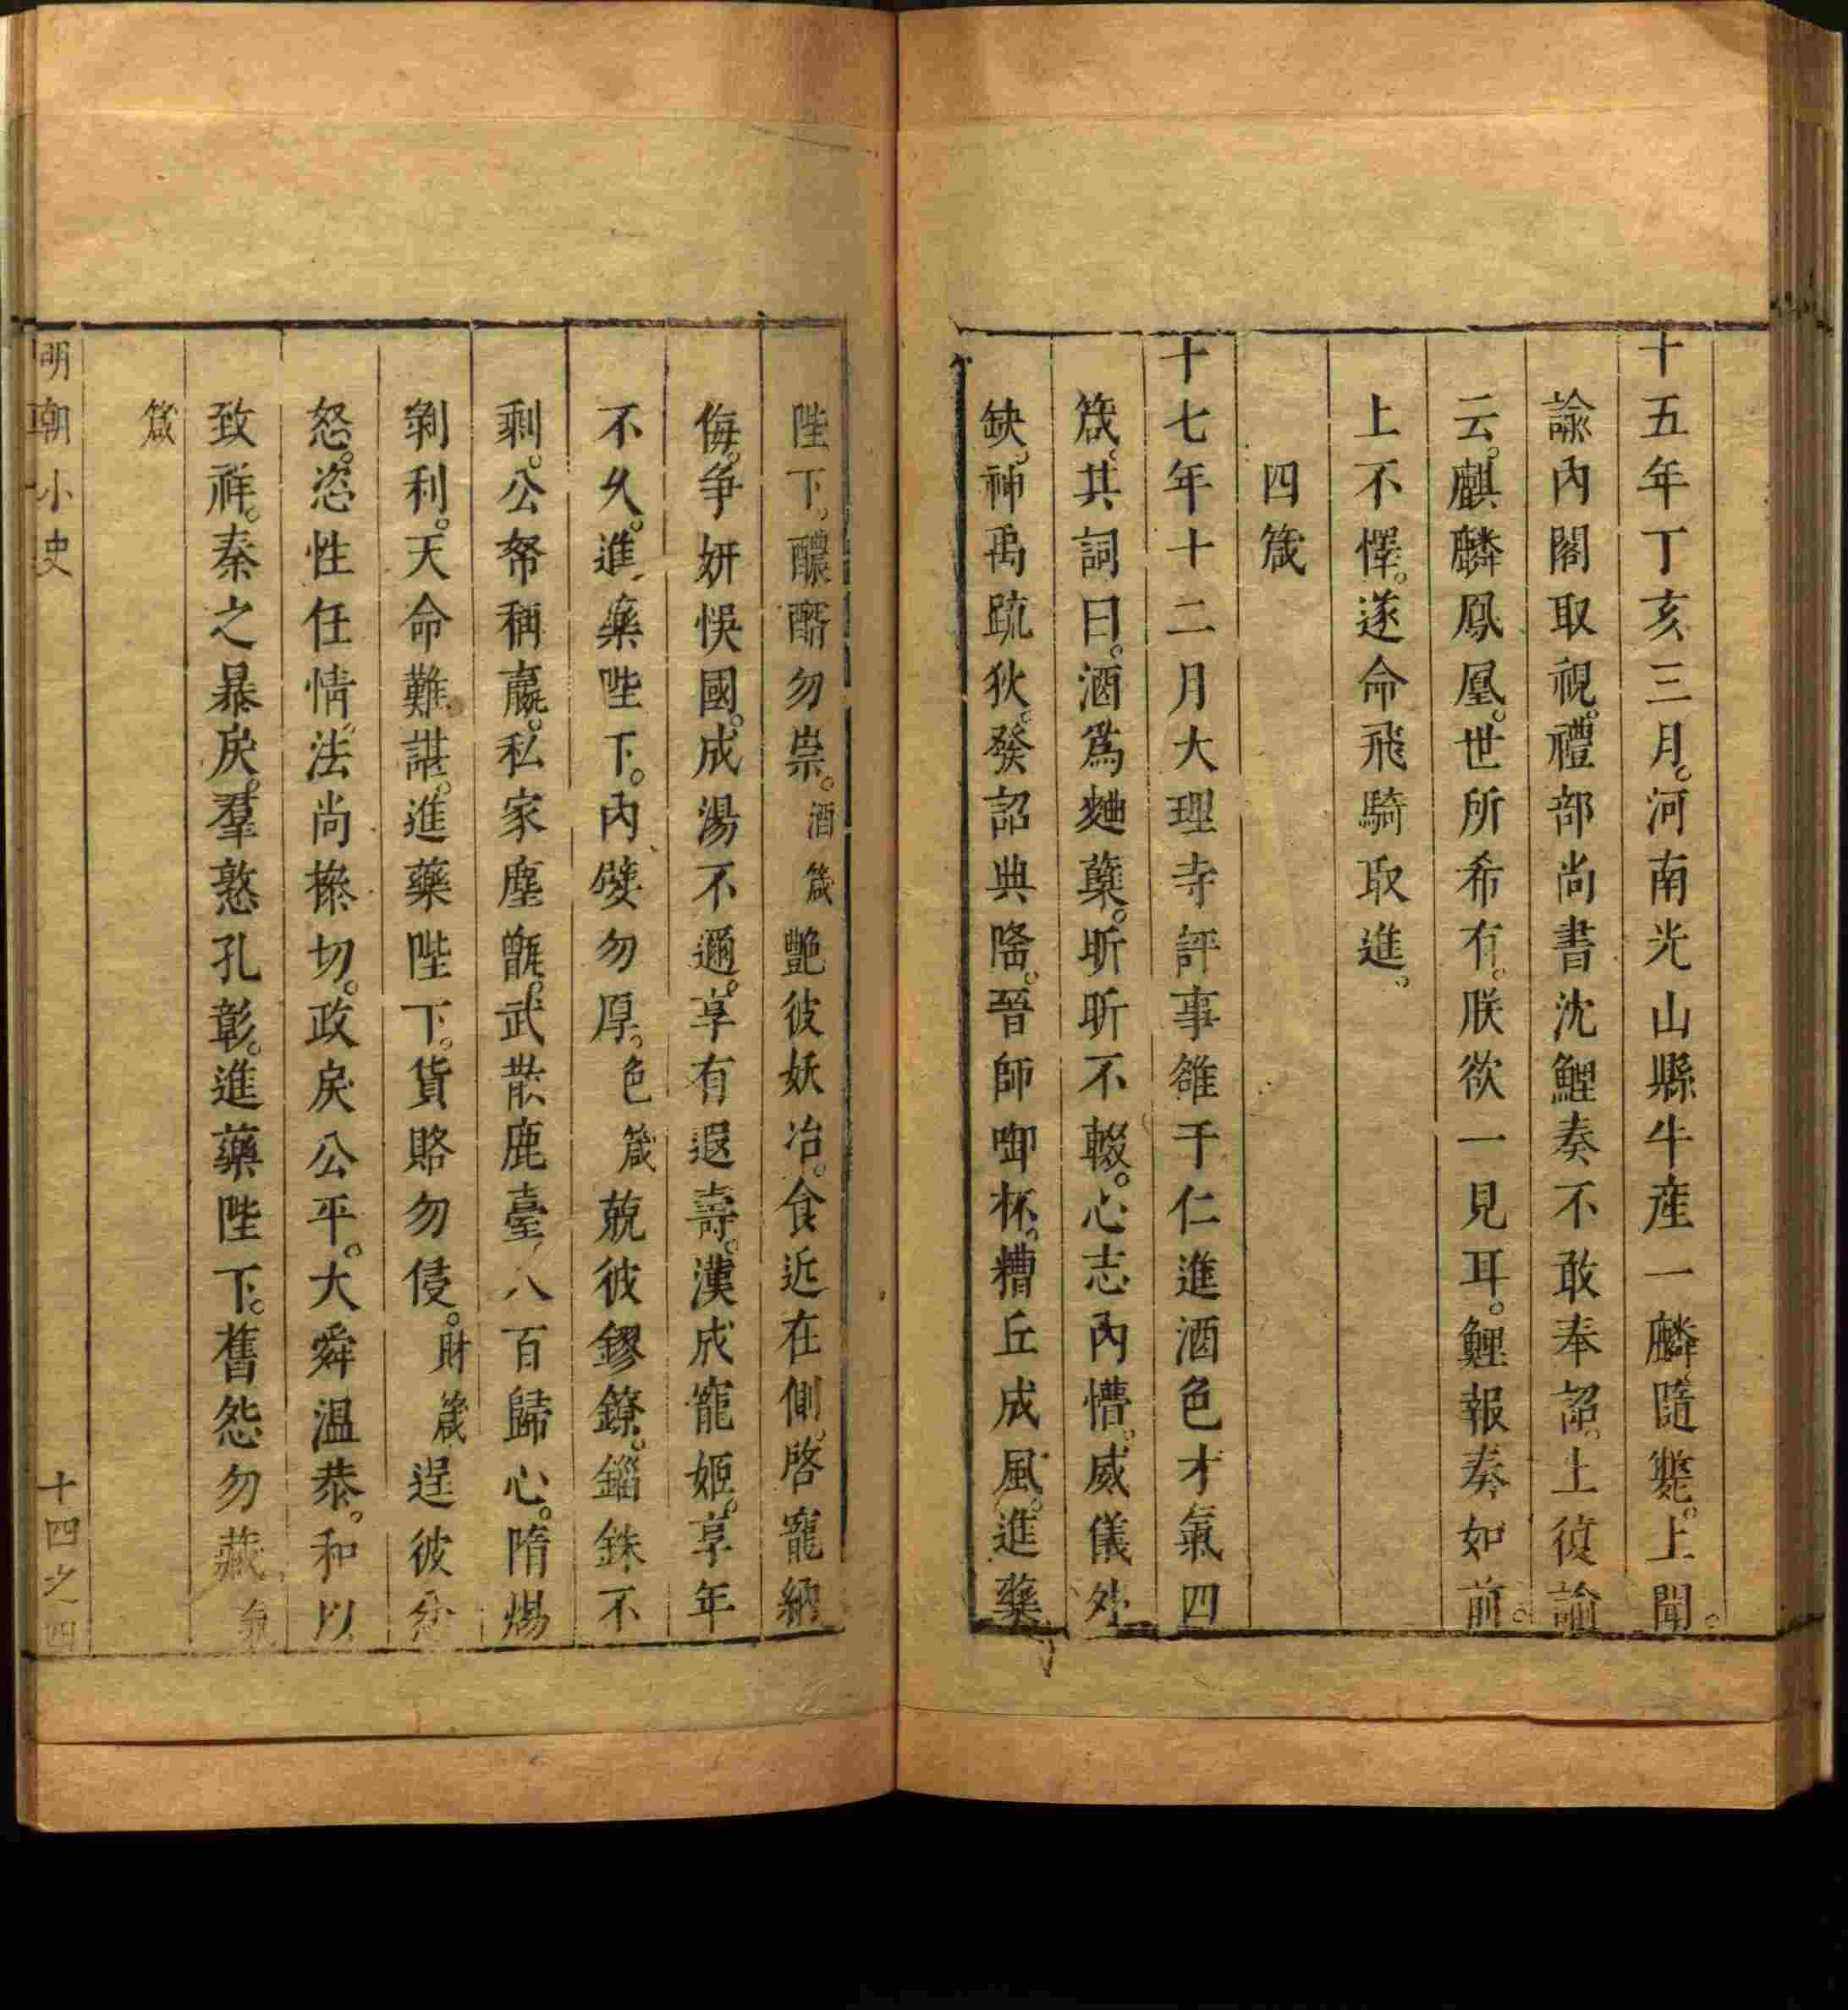 十五年丁亥三月。河南光山縣牛產一麟。隨斃。上聞。
諭內閣取視。禮部尚書沈鯉奏不敢奉詔。上復諭
云。麒麟鳳凰。世所希有。朕欲一見耳。鯉報奏如前。
上不懌。遂命飛騎取進。
四箴
十七年十二月大理寺評事雒于仁進酒色才氣四
箴。其詞曰。酒爲麯蘖。昕昕不輟。心志內懵。威儀外
缺。神禹疏狄。發詔典隆。晉師啣杯。糟丘成風。進藥
陛下。醲醑勿崇。酒箴豔彼妖冶。食近在側。啓寵納
侮。爭妍悞國。成湯不邇。享有遐壽。漢成寵姬。享年
不久。進藥陛下。內嬖勿厚。色箴競彼鏐鐐。錙銖不
剩。公帑稱嬴。私家塵甑。武散鹿臺八百歸心。隋煬
剝利。天命難諶。進藥陛下。貨賂勿侵。財箴逞彼忿
怒。恣性任情。法尚摻切。政戾公平。大舜溫恭。和以
致祥。秦之暴戾。羣憝孔彰。進藥陛下。舊怨勿藏氣
箴
明朝小史 十四之四